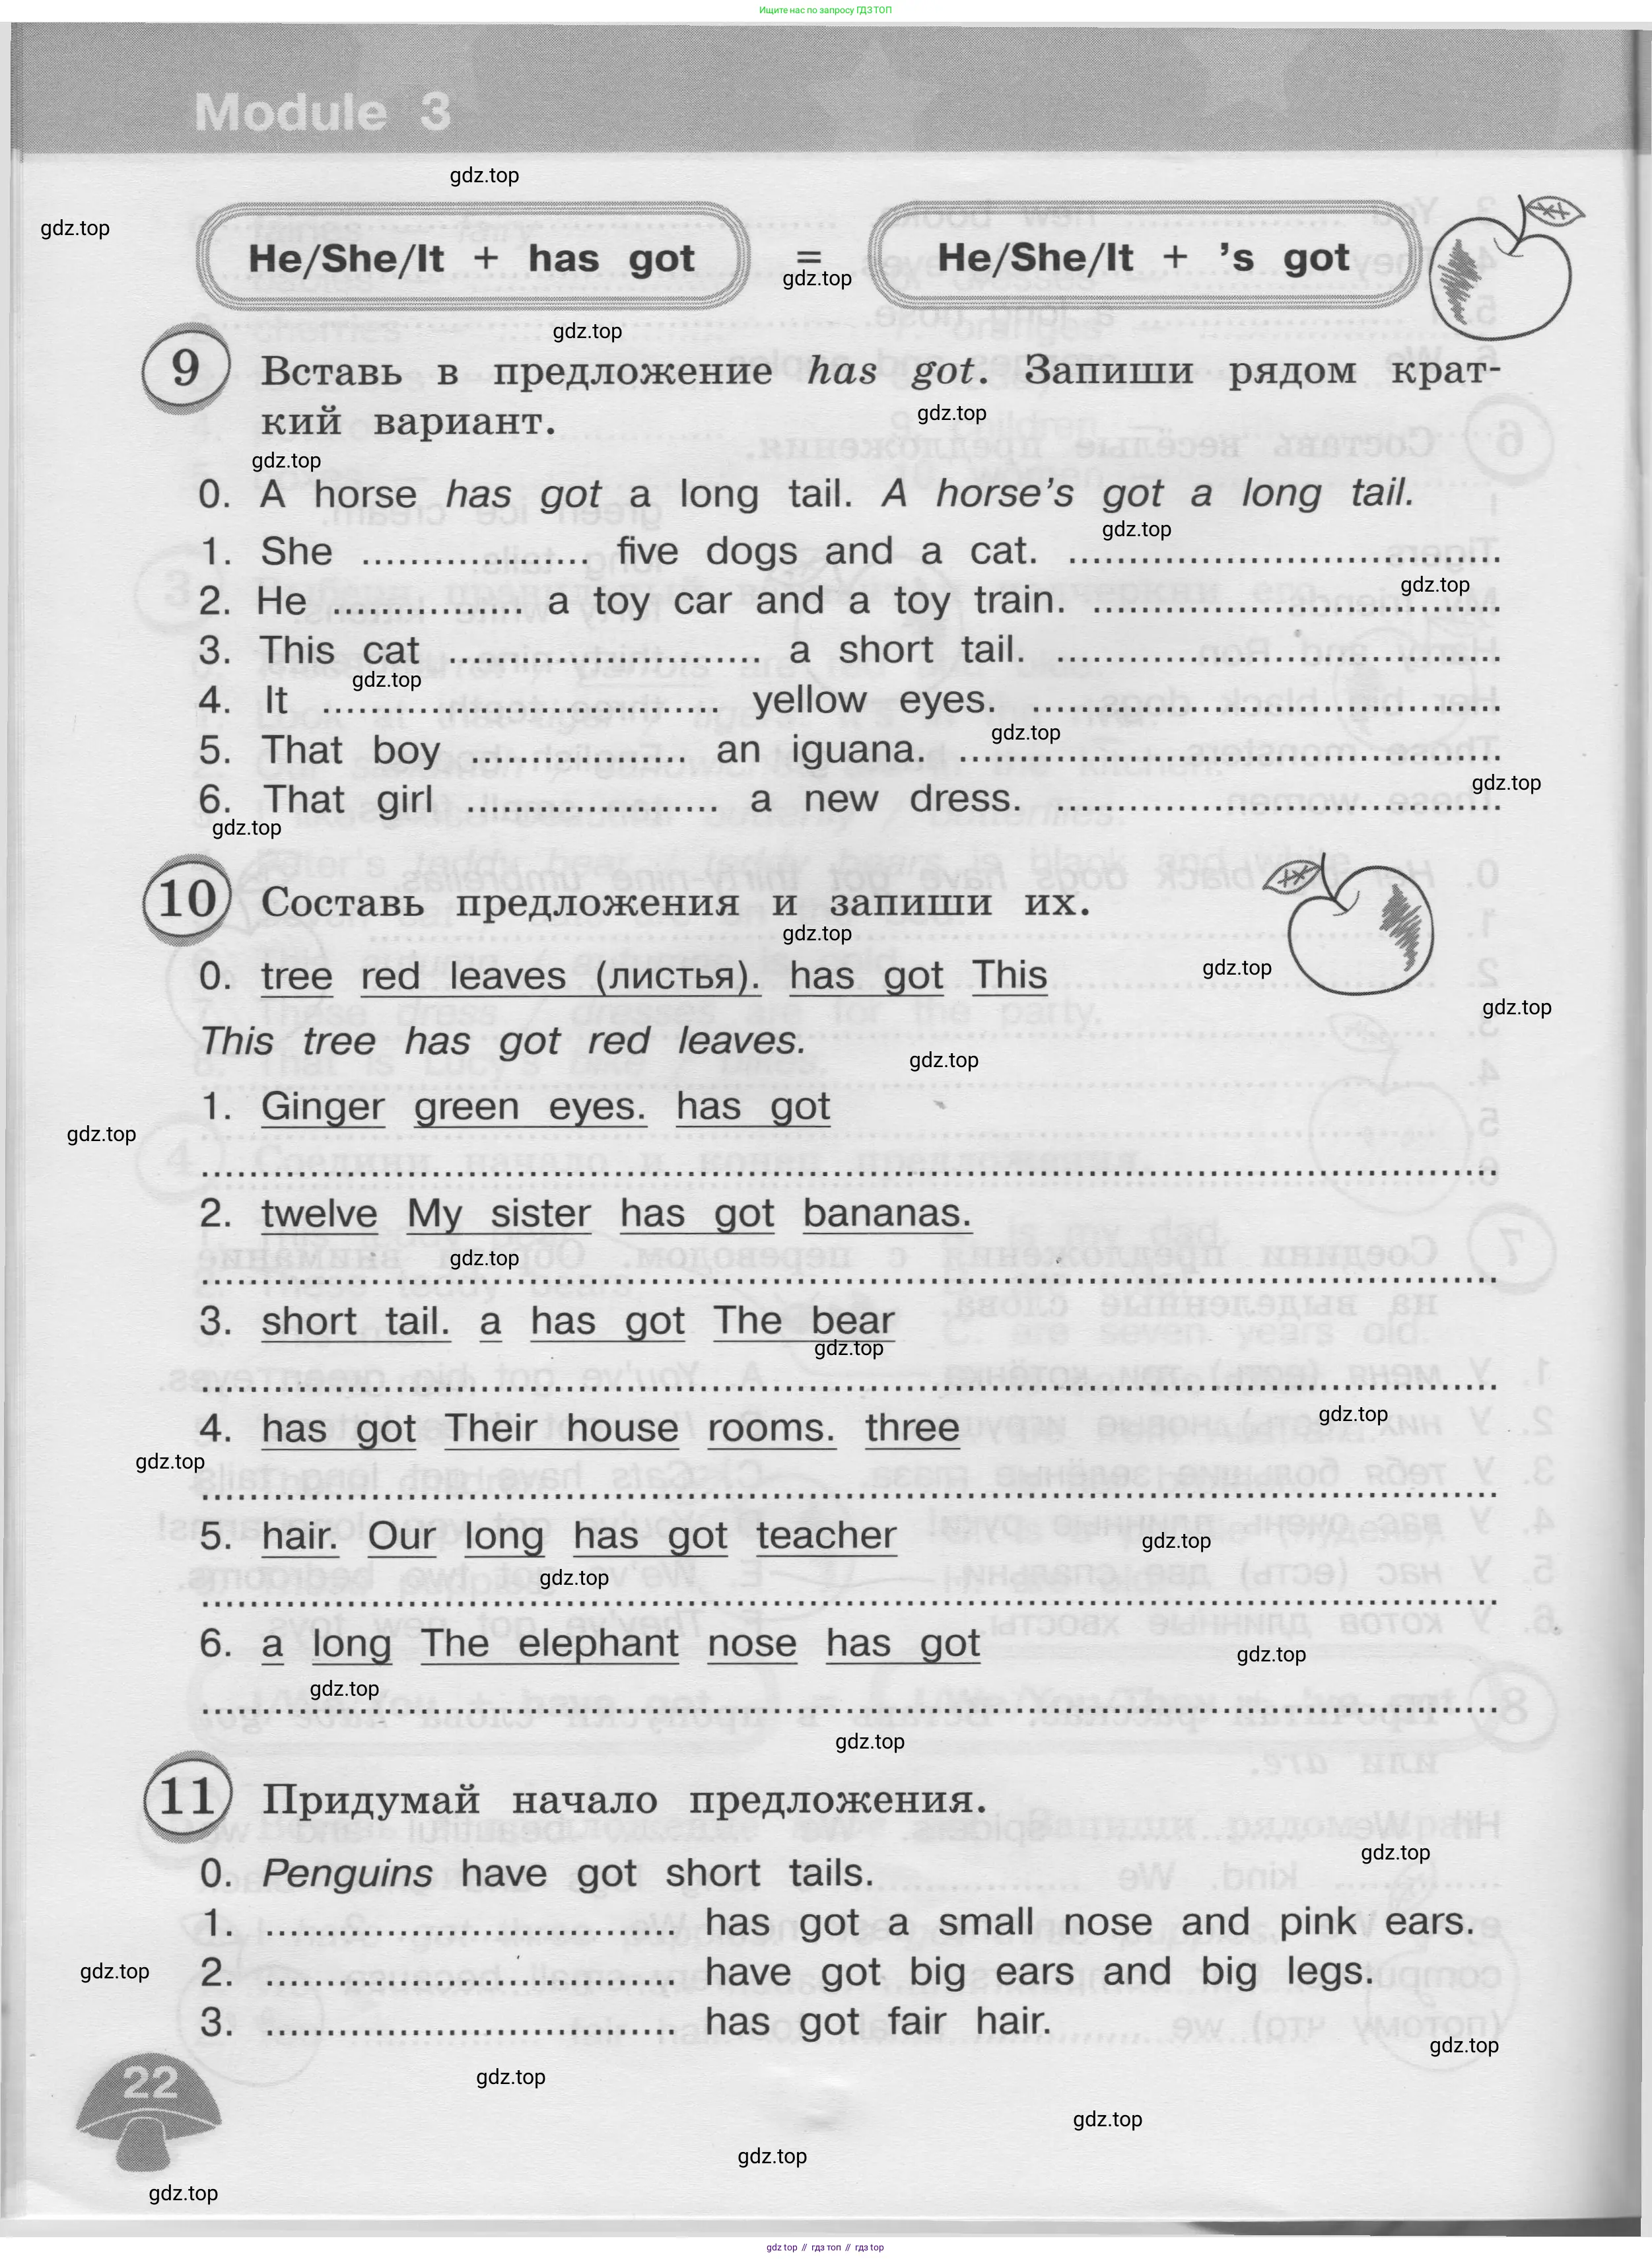 Ищите нас по запросу ГДЗ ТОП
Module 3
gdz.top
gdz.top
He/She/It + has got = He/She/It + ’s got
gdz.top
gdz.top
9 Вставь в предложение has got. Запиши рядом крат-
кий вариант.
gdz.top
gdz.top
0. A horse has got a long tail. A horse’s got a long tail.
gdz.top
1. She .................. five dogs and a cat. ..................
gdz.top
2. He .................. a toy car and a toy train. ..................
3. This cat .................. a short tail. ..................
gdz.top
4. It .................. yellow eyes. ..................
gdz.top
5. That boy .................. an iguana. ..................
gdz.top
6. That girl .................. a new dress. ..................
gdz.top
10 Составь предложения и запиши их.
gdz.top
gdz.top
0. tree red leaves (листья). has got This
gdz.top
This tree has got red leaves.
gdz.top
1. Ginger green eyes. has got
gdz.top
..................
2. twelve My sister has got bananas.
gdz.top
..................
3. short tail. a has got The bear
gdz.top
..................
gdz.top
4. has got Their house rooms. three
gdz.top
..................
5. hair. Our long has got teacher
gdz.top
gdz.top
..................
6. a long The elephant nose has got
gdz.top
gdz.top
..................
gdz.top
11 Придумай начало предложения.
gdz.top
0. Penguins have got short tails.
1. .................. has got a small nose and pink ears.
gdz.top
2. .................. have got big ears and big legs.
3. .................. has got fair hair.
gdz.top
22
gdz.top
gdz.top
gdz.top
gdz.top
gdz top // гдз топ // гдз top